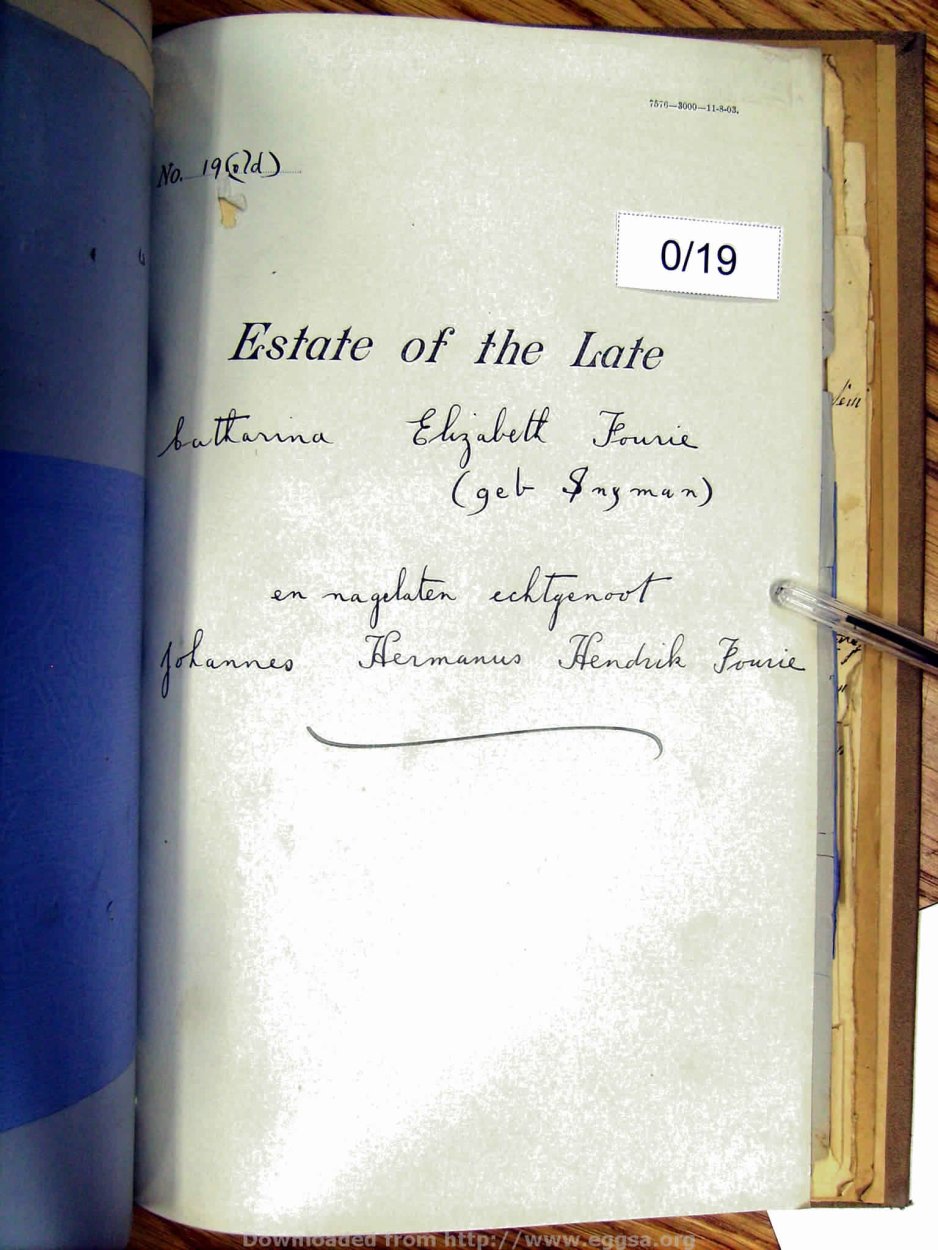 7576—3000—11-8-03.
No. 19 (old)
0/19
Estate of the Late
Catharina Elizabeth Fourie
(geb Snyman)
en nagelaten echtgenoot
Johannes Hermanus Hendrik Fourie
Downloaded from http://www.eggsa.org